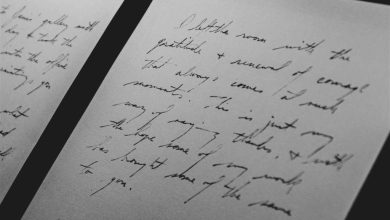 t Louis' gallery with
day & took the
into the office
painting, you
I left the room with the
gratitude & renewal of courage
that always comes / at such
moments. This is just my
way of saying thanks, & with
the hope some of my work
has brought some of the same
to you.